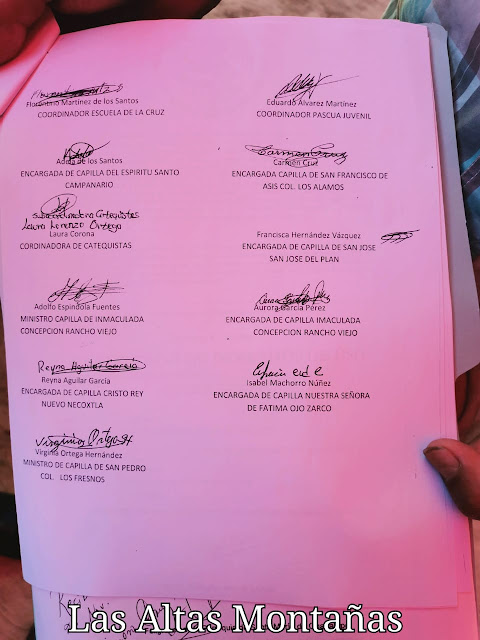 Florentino Martínez de los Santos
COORDINADOR ESCUELA DE LA CRUZ
Eduardo Álvarez Martínez
COORDINADOR PASCUA JUVENIL
Adda de los Santos
ENCARGADA DE CAPILLA DEL ESPIRITU SANTO
CAMPANARIO
Carmen Cruz
Carmen Cruz
ENCARGADA DE CAPILLA DE SAN FRANCISCO DE
ASIS COL. LOS ALAMOS
Subcordinadora Catequistas
Laura Lorenzo Ortega
Laura Corona
CORDINADORA DE CATEQUISTAS
Francisca Hernández Vázquez
ENCARGADA DE CAPILLA DE SAN JOSE
SAN JOSE DEL PLAN
Adolfo Espindola Fuentes
MINISTRO CAPILLA DE INMACULADA
CONCEPCION RANCHO VIEJO
Aurora García Pérez
ENCARGADA DE CAPILLA IMACULADA
CONCEPCION RANCHO VIEJO
Reyna Aguilar García
Reyna Aguilar García
ENCARGADA DE CAPILLA CRISTO REY
NUEVO NECOXTLA
Isabel Machorro Núñez
ENCARGADA DE CAPILLA NUESTRA SEÑORA
DE FATIMA OJO ZARCO
Virginia Ortega H
Virginia Ortega Hernández
MINISTRO DE CAPILLA DE SAN PEDRO
COL. LOS FRESNOS
Las Altas Montañas